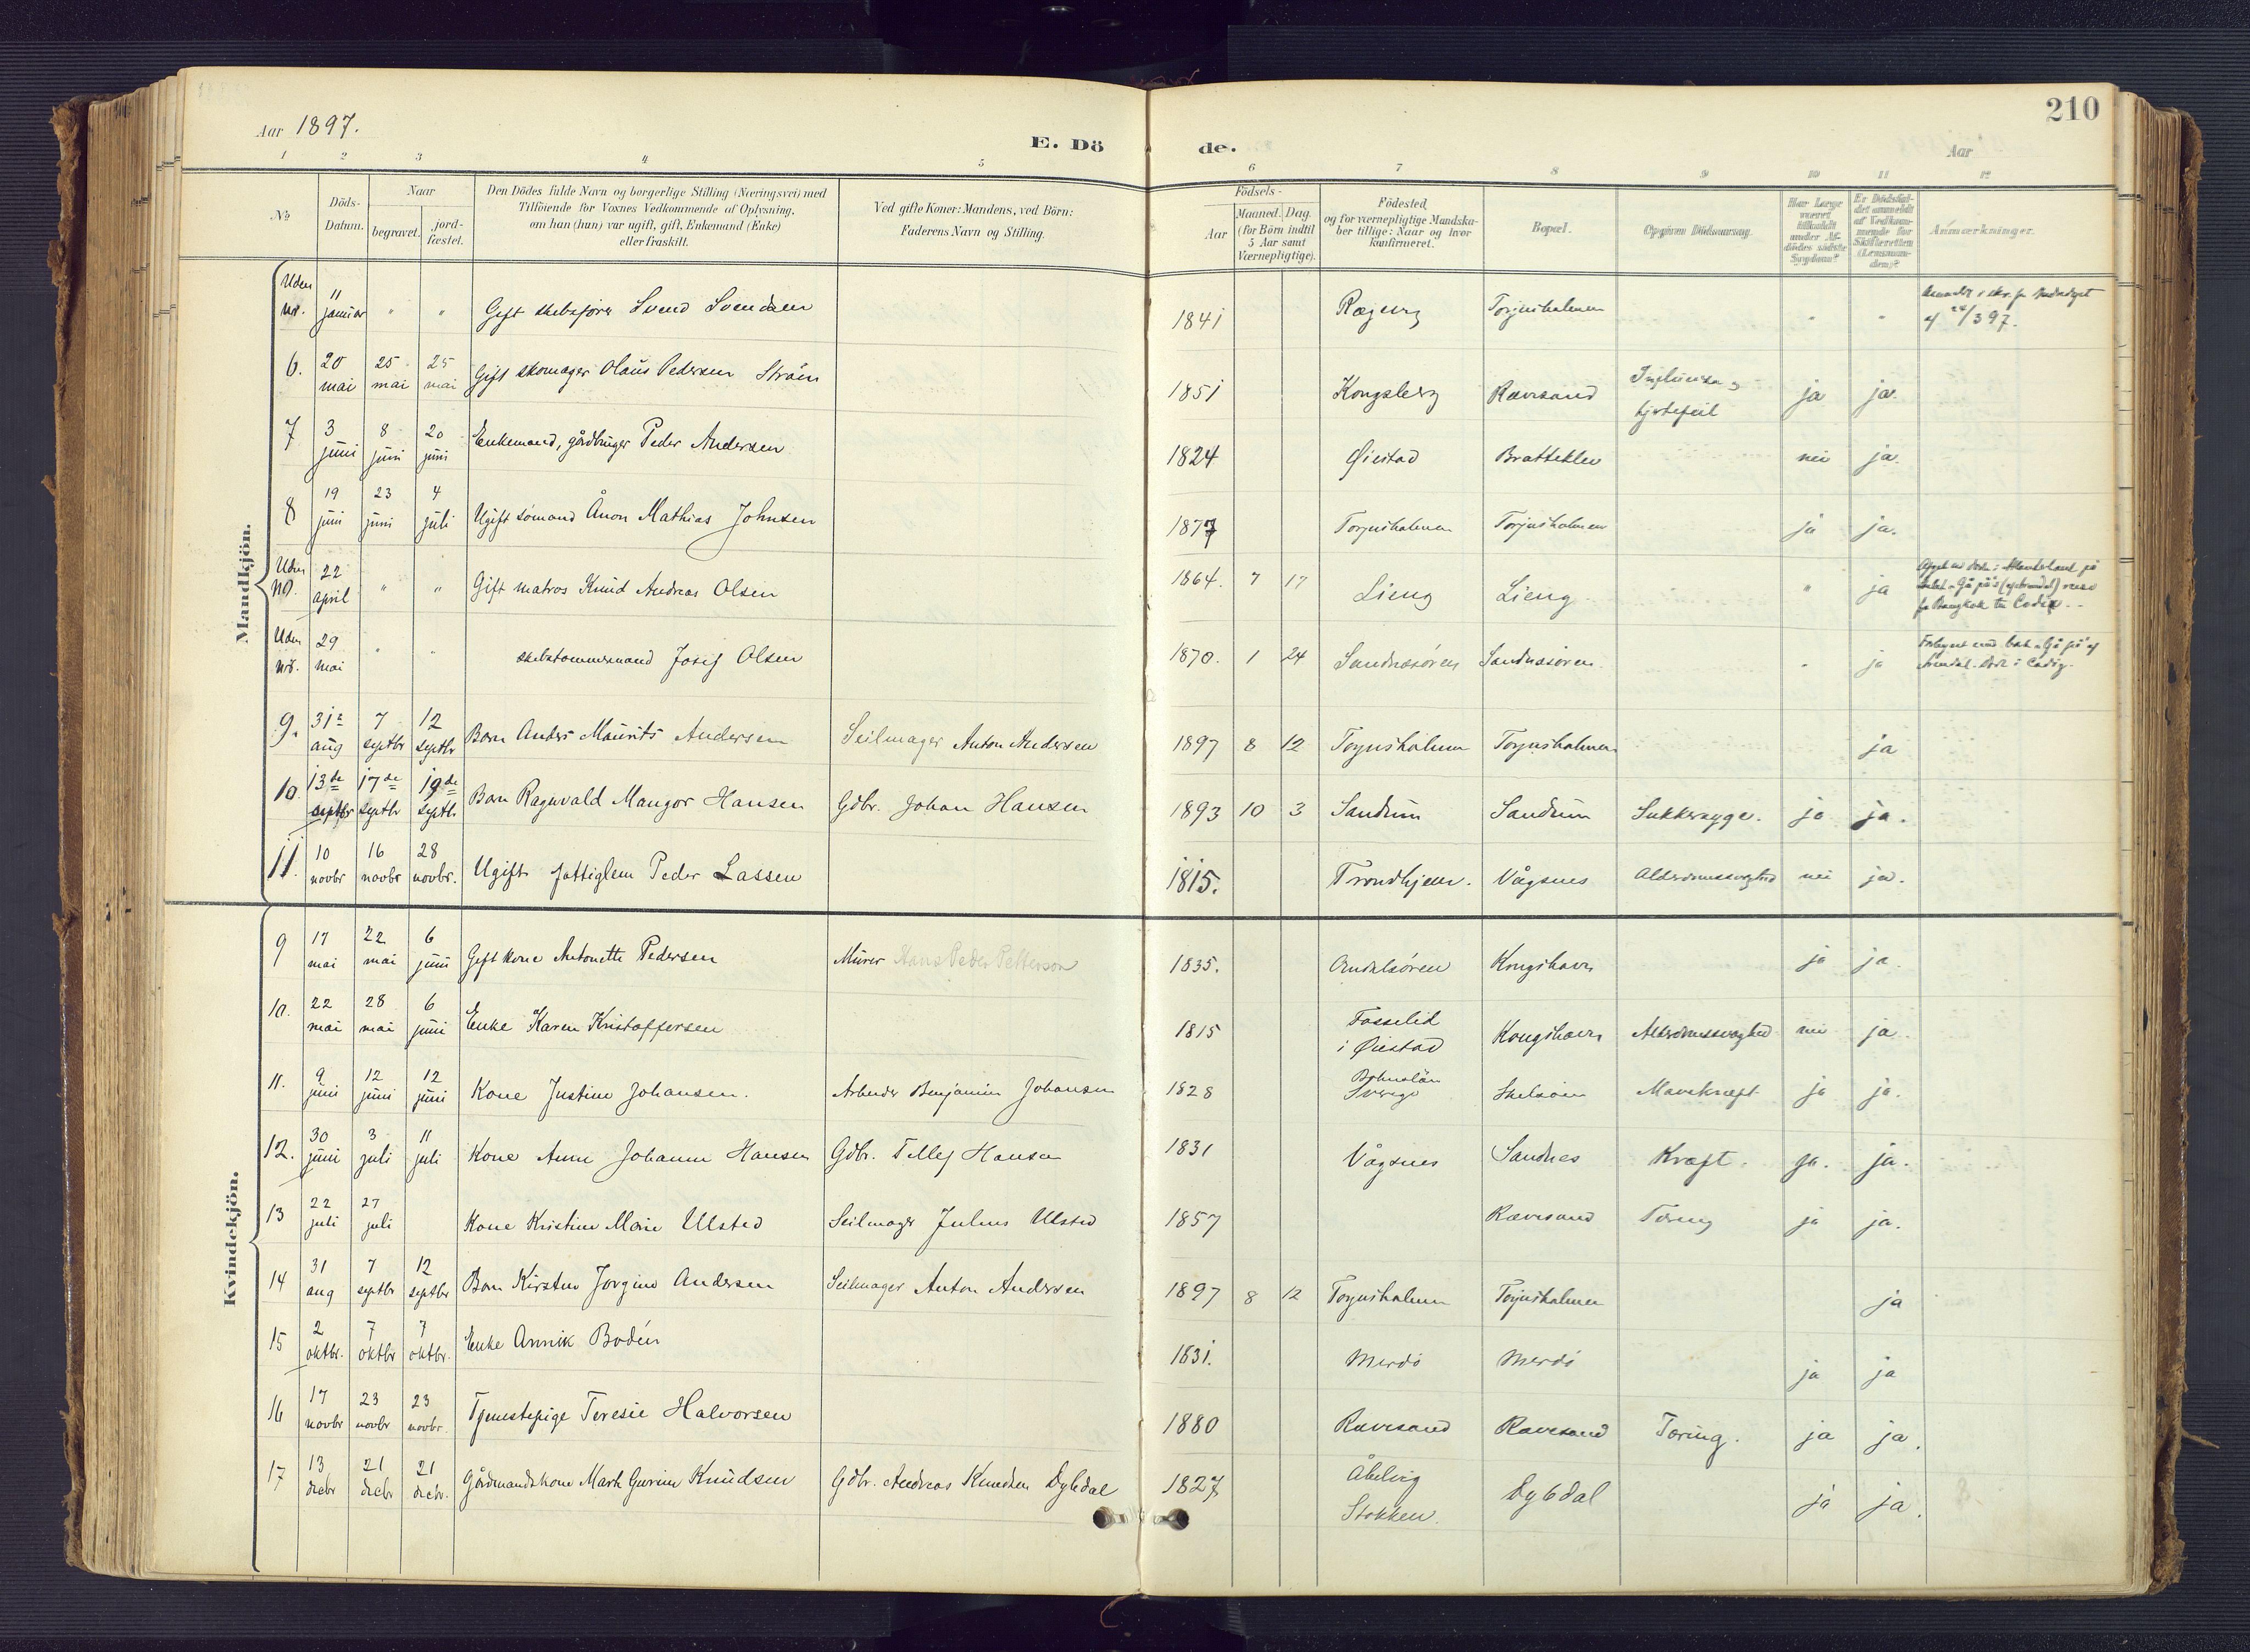 210
Aar 1897.
E. Döde.
Aar
1 2 3 4 5 6 7 8 9 10 11 12
No
Döds-Datum.
Naar
begravet.
jordfæstet.
Den Dödes fulde Navn og borgerlige Stilling (Næringsvei) med
Tilföiende for Voxnes Vedkommende af Oplysning,
om han (hun) var ugift, gift, Enkemand (Enke)
eller fraskilt.
Ved gifte Koner: Mandens, ved Börn:
Faderens Navn og Stilling.
Födsels-
Aar
Maaned. Dag.
(for Börn indtil
5 Aar samt
Værnepligtige).
Födested,
og for værnepligtige Mandska-
ber tillige: Naar og hvor
konfirmeret.
Bopæl.
Opgiven Dödsaarsag.
Anmærkninger.
Mandkjön.
Uden nr. 11 januar " " Gift skibsförer Svend Svendsen 1841 Torjusholmen " "
6. 20 mai 25 mai 25 mai Gift skomager Olaus Pedersen Ström 1851 Kongsberg Rævesand Influensa og hjertefeil ja ja.
7 3 juni 8 juni 20 juni Enkemand, gårdbruger Peder Andersen 1824 Øiestad Bratteklev nei ja.
8 19 juni 23 juni 4 juli Ugift sömand Ånon Mathias Johnsen 1877 Torjusholmen Torjusholmen ja ja.
Uden No. 22 april " " Gift matros Knud Andreas Olsen 1864. 7 17 Lieng Lieng. " ja
fra Bangkok til Cadix.
Uden nr. 29 mai " " skibstømmermand Josef Olsen 1870. 1 24 Sandnessøren Sandnessøren. " ja
9. 31te aug 7 septbr 12 septbr Barn Anders Maurits Andersen Seilmager Anton Andersen 1897 8 12 Torjusholmen Torjusholmen ja
10. 13de septbr 17de septbr 19de septbr Barn Ragnvald Mangor Hansen Gdbr. Johan Hansen 1893 10 3 Sandum Sandum Sukkersyge. ja ja.
11. 10 novbr 16 novbr 28 novbr. Ugift fattiglem Peder Lassen 1815. Trondhjem. Vågsnes Alderdomssvaghed nei ja.
Kvindekjön.
9 17 mai 22 mai 6 juni Gift kone Antonette Pedersen Murer Hans Peder Petterson 1835. Arendalsøren Kongshavn ja ja.
10. 22 mai 28 mai 6 juni Enke Karen Kristoffersen 1815 Fosselid i Øiestad Kongshavn Alderdomssvaghed nei ja.
11. 9 juni 12 juni 12 juni Kone Justine Johansen. Arbeider Benjamin Johansen 1828 Bohuslän Sverige Mavekræft ja ja.
12. 30 juni 3 juli 11 juli Kone Anne Johanne Hansen Gdbr. Tellef Hansen 1831 Vågsnes Sandnes Kræft. ja. ja.
13 22 juli 27 juli Kone Kristine Marie Ulsted Seilmager Julius Ulsted 1857 Rævesand Tæring ja ja.
14 31 aug 7 septbr 12 septbr Barn Kirstine Jørgine Andersen Seilmager Anton Andersen 1897 8 12 Torjusholmen Torjusholmen ja
15 2 oktbr. 7 oktbr 7 oktbr. Enke Annik Bodén 1831. Merdö Merdö ja ja
16 17 novbr 23 novbr 23 novbr. Tjenestepige Teresie Halvorsen 1880 Rævesand Rævesand Tæring. ja ja.
17 13 decbr 21 decbr 21 decbr. Gårdmandskone Gurine Knudsen Gdbr. Andreas Knudsen Dybdal 1827 Stokken. Dybdal ja ja.